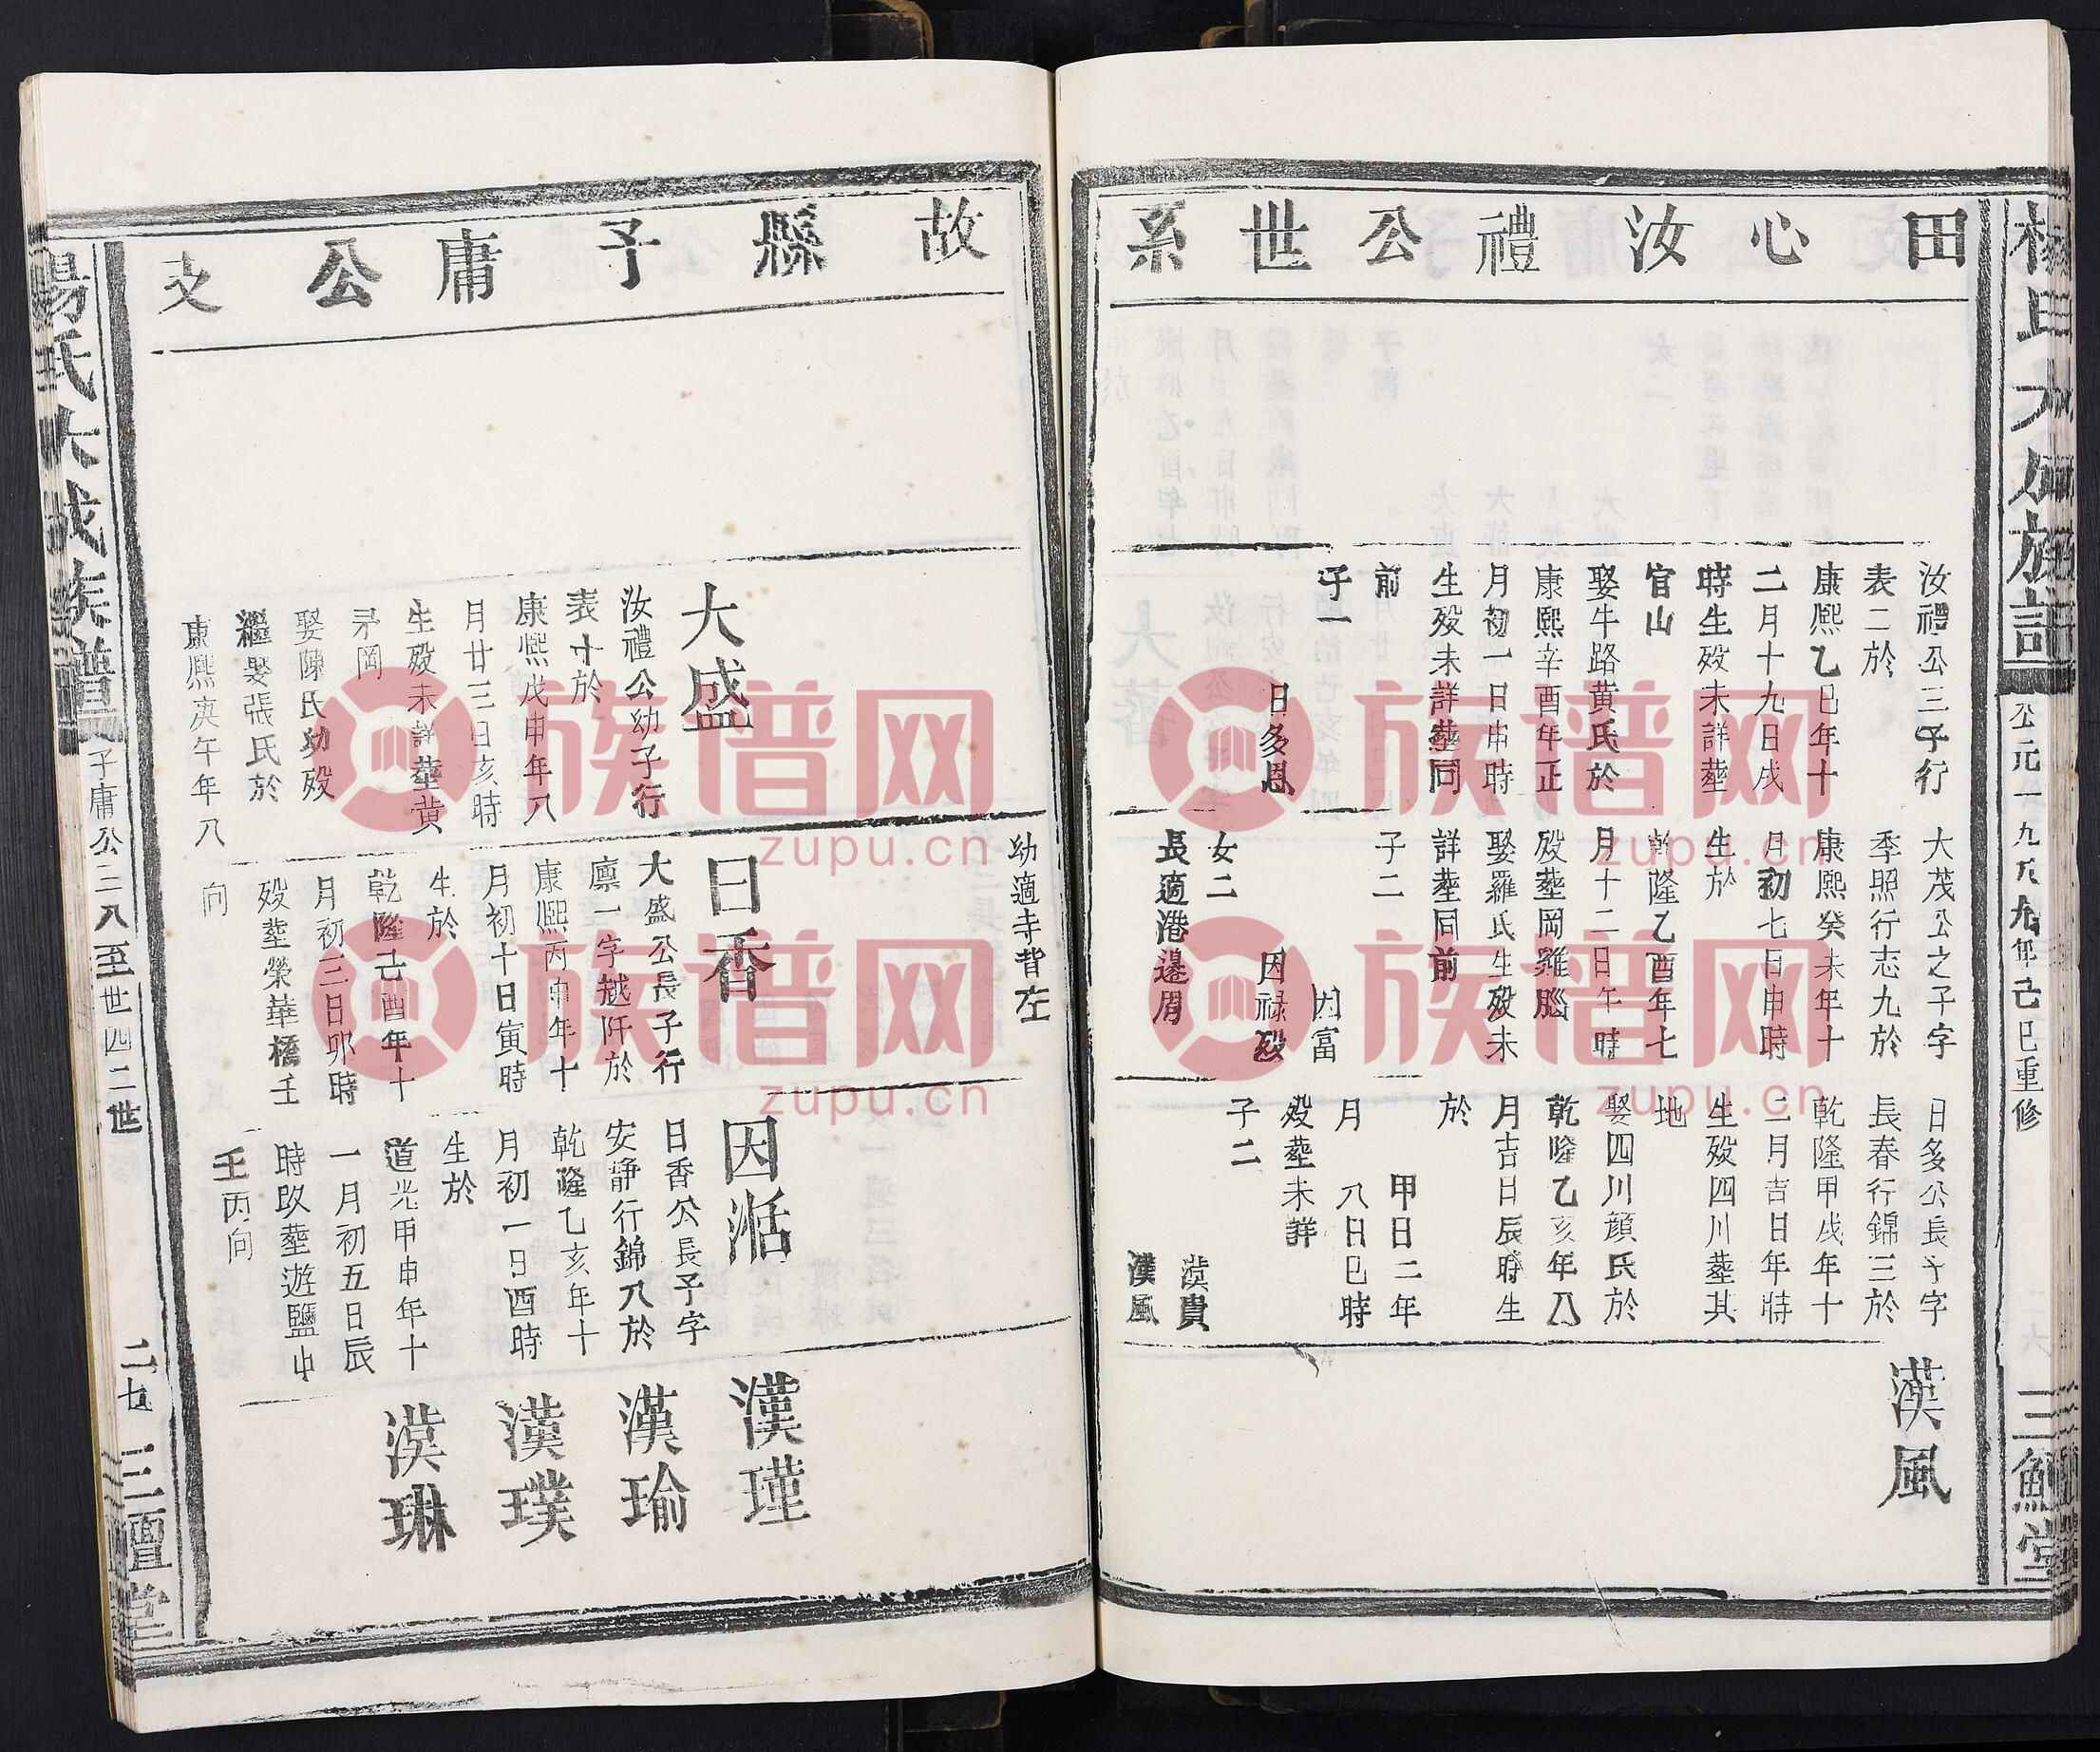 楊氏大成族譜
公元一九九九年己巳重修
三鱣堂
田心汝禮公世系
汝禮公三子行
表二於
康熙乙巳年十
二月十九日戌
時生歿未詳塟
官山
娶牛路黄氏於
康熙辛酉年正
月初一日申時
生歿未詳塟同
前
子一
日多恩
大茂公之子字
季照行志九於
康熙癸未年十
月初七日申時
生於
乾隆乙酉年七
月十二日午時
歿塟岡雞腦
娶羅氏生歿未
詳塟同前
子二
因富
因禄歿
女二
長適港邊周
日多公長子字
長春行錦三於
乾隆甲戌年十
二月吉日年時
生歿四川塟其
地
娶四川顏氏於
乾隆乙亥年八
月吉日辰時生
於
甲日二年
月 八日巳時
歿塟未詳
子二
漢貴
漢風
漢風
故縣子庸公支
幼適寺背左
大盛
汝禮公幼子行
表十於
康熙戊申年八
月廿三日亥時
生歿未詳塟黄
茅岡
娶陳氏幼歿
繼娶張氏於
康熙庚午年八
日香
大盛公長子行
凛一字越阡於
康熙丙申年十
月初十日寅時
生於
乾隆己酉年十
月初三日卯時
歿塟榮華橋壬
向
因湉
日香公長子字
安静行錦八於
乾隆乙亥年十
月初一日酉時
生於
道光甲申年十
一月初五日辰
時歿塟遊鹽山
壬丙向
漢瑾
漢瑜
漢璞
漢琳
楊氏大成族譜
子庸公三八至世四二世
二七
三鱣堂